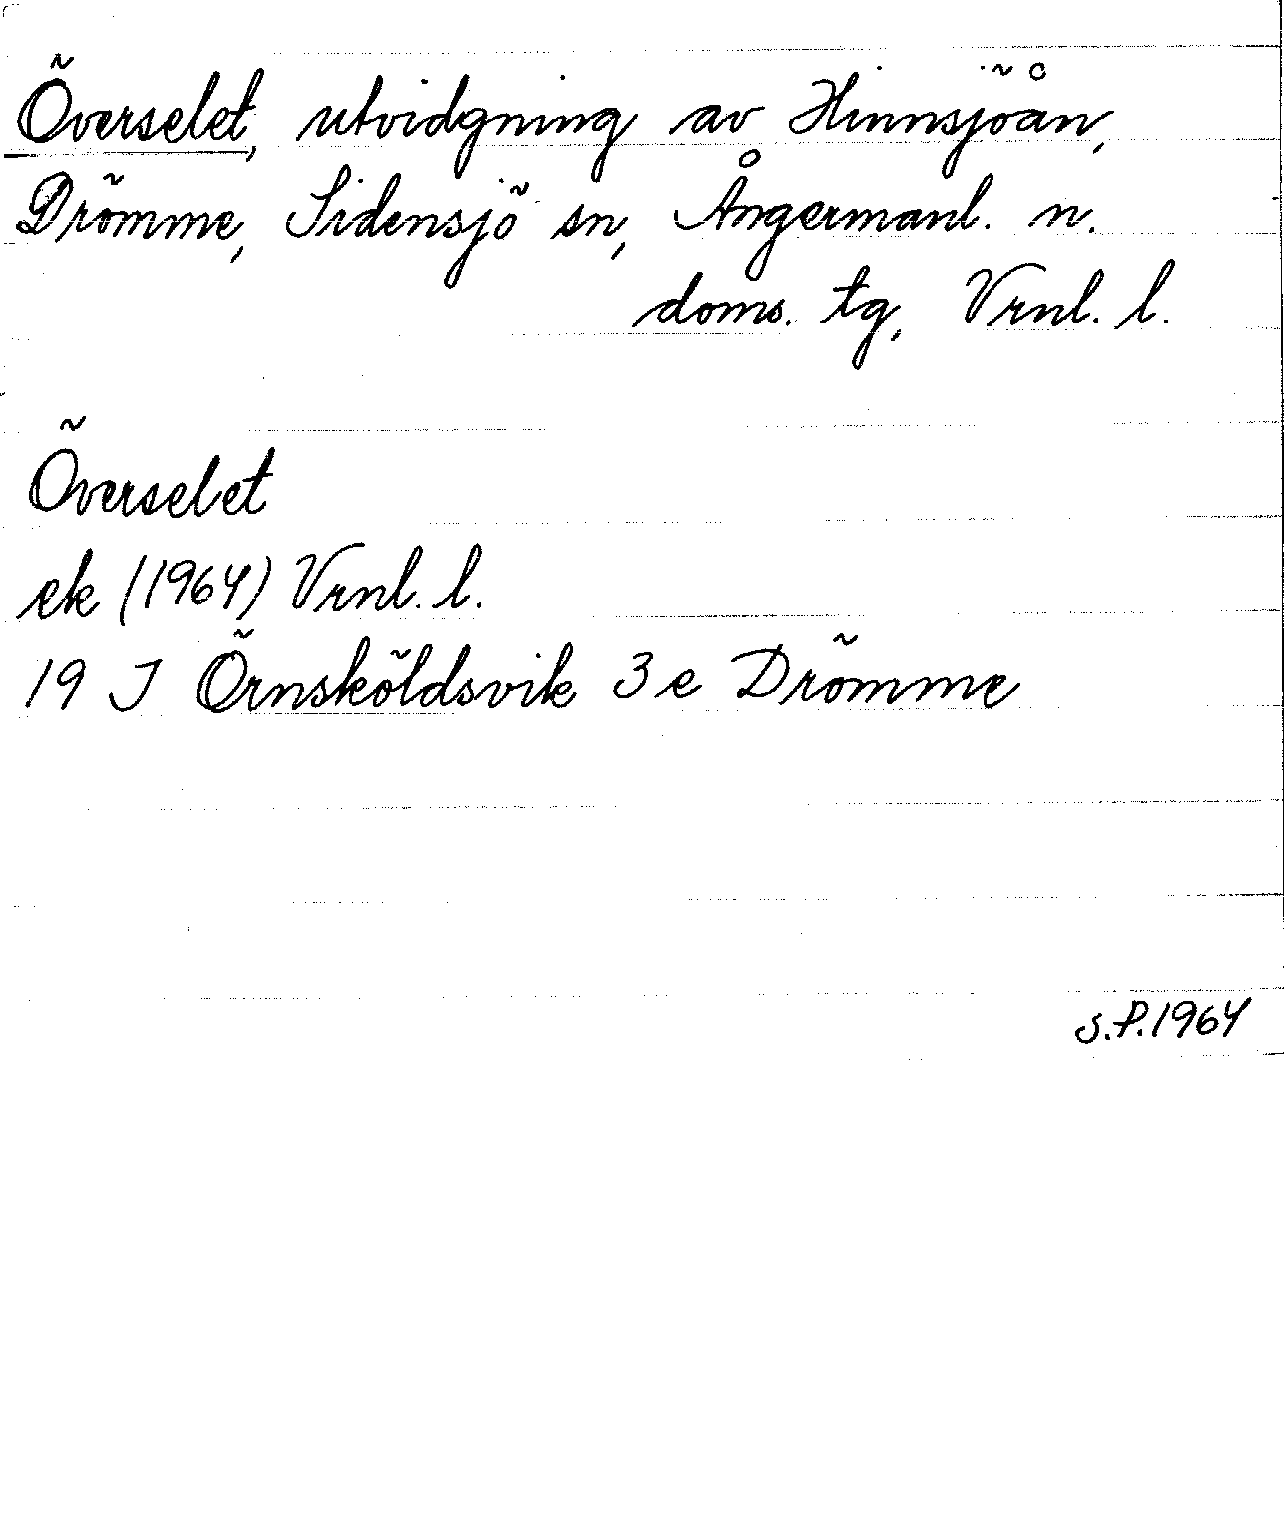 Överselet, utvidgning av Hinnsjöån,
Drömme, Sidensjö sn, Ångermanl. n.
doms. tg, Vrnl. l.
Överselet
ek (1964) Vrnl. l.
19 J Örnsköldsvik 3 e Drömme
S.P. 1964